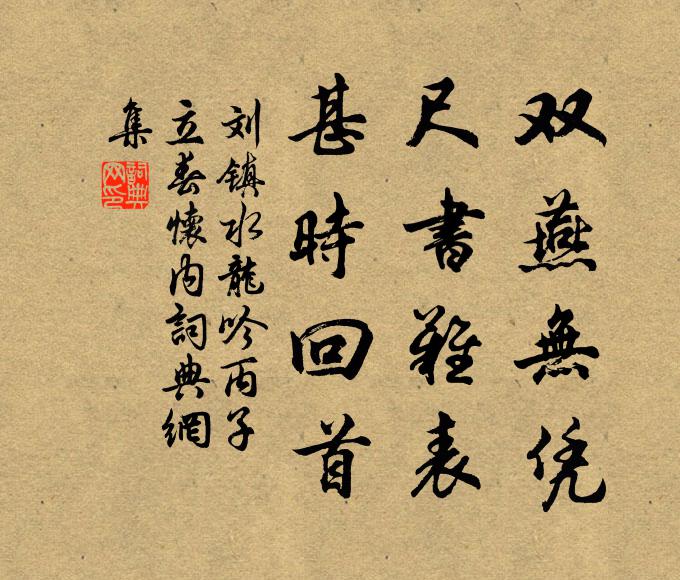 双燕無凭
尺書難表
甚時回首
刘镇水龍吟丙子
立春懷内詞典網
集
詞典
网印